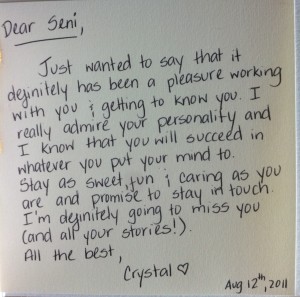 Dear Seni,
Just wanted to say that it
definitely has been a pleasure working
with you & getting to know you. I
really admire your personality and
I know that you will succeed in
whatever you put your mind to.
Stay as sweet, fun & caring as you
are and promise to stay in touch.
I'm definitely going to miss you
(and all your stories!).
All the best,
Crystal ♡
Aug 12th, 2011